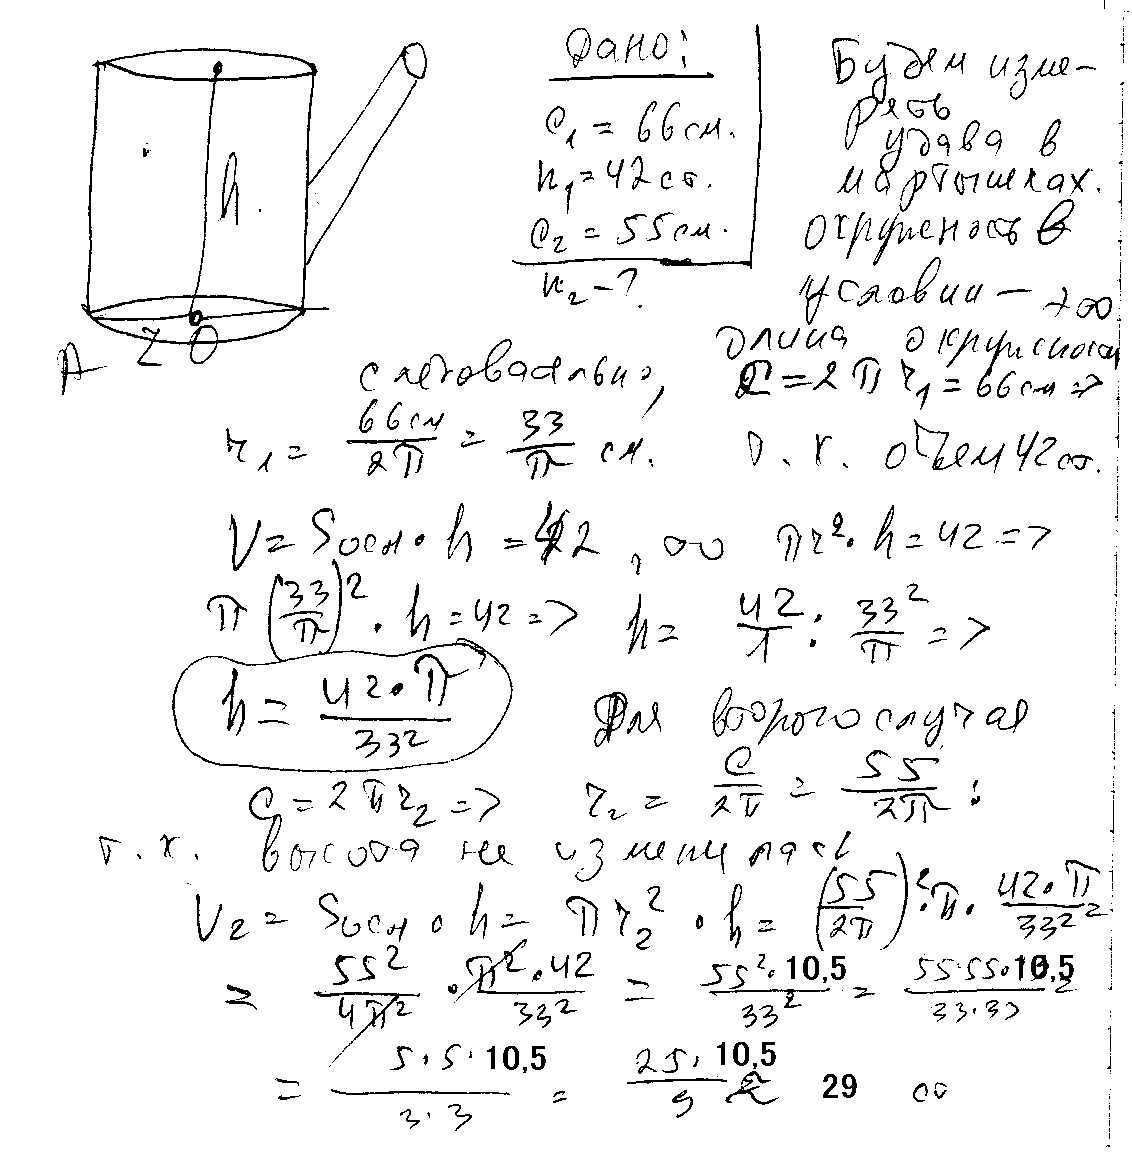 Дано:
C₁ = 66 см.
n₁ = 42 ст.
C₂ = 55 см.
n₂ - ?
Будем изме-
рять
удава в
мартышках.
окружность в
условии - это
длина окружности
h.
A r O
следовательно, C = 2πr₁ = 66 см =>
r₁ = 66см/2π = 33/π см. т.к. объем 42 ст.
V = Sосн · h = 42, то πr² · h = 42 =>
π (33/π)² · h = 42 => h = 42/1 : 33²/π =>
h = 42·π/33² Для второго случая
C = 2πr₂ => r₂ = C/2π = 55/2π ;
т.к. высота не изменилась
V₂ = Sосн · h = πr₂² · h = (55/2π)² · π · 42·π/33² =
= 55²/4π² · π²·42/33² = 55²·10,5/33² = 55·55·10,5/33·33 =
= 5·5·10,5/3·3 = 25·10,5/9 ≈ 29 ст